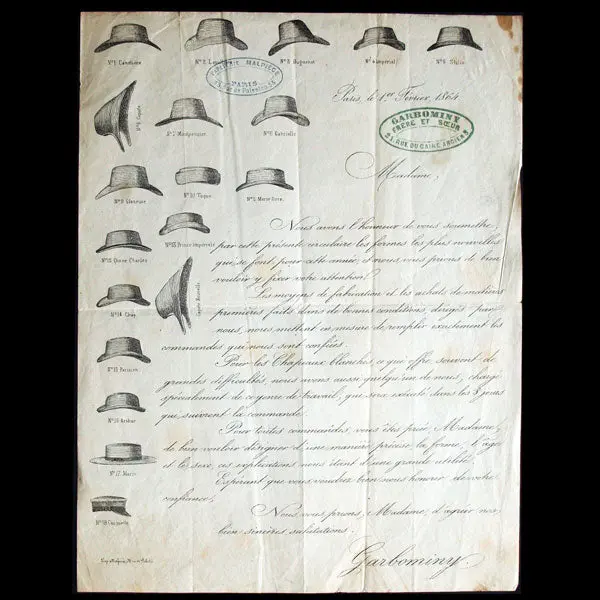 N°1 Cantinière
N°3 Huguenot
N°4 Impérial
N°5 Stella
MALPIÈCE
PARIS
Paris, le 1er Février 1864
GARBOMINY
FRÈRE ET SŒUR
RUE DU CAIRE ANCIEN
N°7 Montpensier
N°8 Gabrielle
Madame,
N°10 Toque
Nous avons l'honneur de vous soumettre,
par cette présente circulaire les formes les plus nouvelles
N°13 Prince Impériale
qui se font pour cette année, et nous vous prions de bien
vouloir y fixer votre attention!
Capote Nouvelle
Les moyens de fabrication et les achats de matières
premières faits dans de bonnes conditions dirigés par
N°14
nous, nous mettent en mesure de remplir exactement les
commandes qui nous sont confiées.
Pour les Chapeaux blanches, ce qui offre souvent de
N°15 Parisien
grandes difficultés, nous avons aussi quelqu'un de nous, chargé
spécialement de ce genre de travail, qui sera exécuté dans les 8 jours
que suivront la commande.
N°16 Arthur
Pour toutes commandes vous êtes priée, Madame,
de bien vouloir désigner d'une manière précise, la forme, l'âge
et le sexe, ces explications nous étant d'une grande utilité.
N°17 Marin
Espérant que vous voudrez bien nous honorer de votre
confiance,
Nous vous prions, Madame, d'agréer nos
N°18 Casquette
bien sincères salutations.
Garbominy.